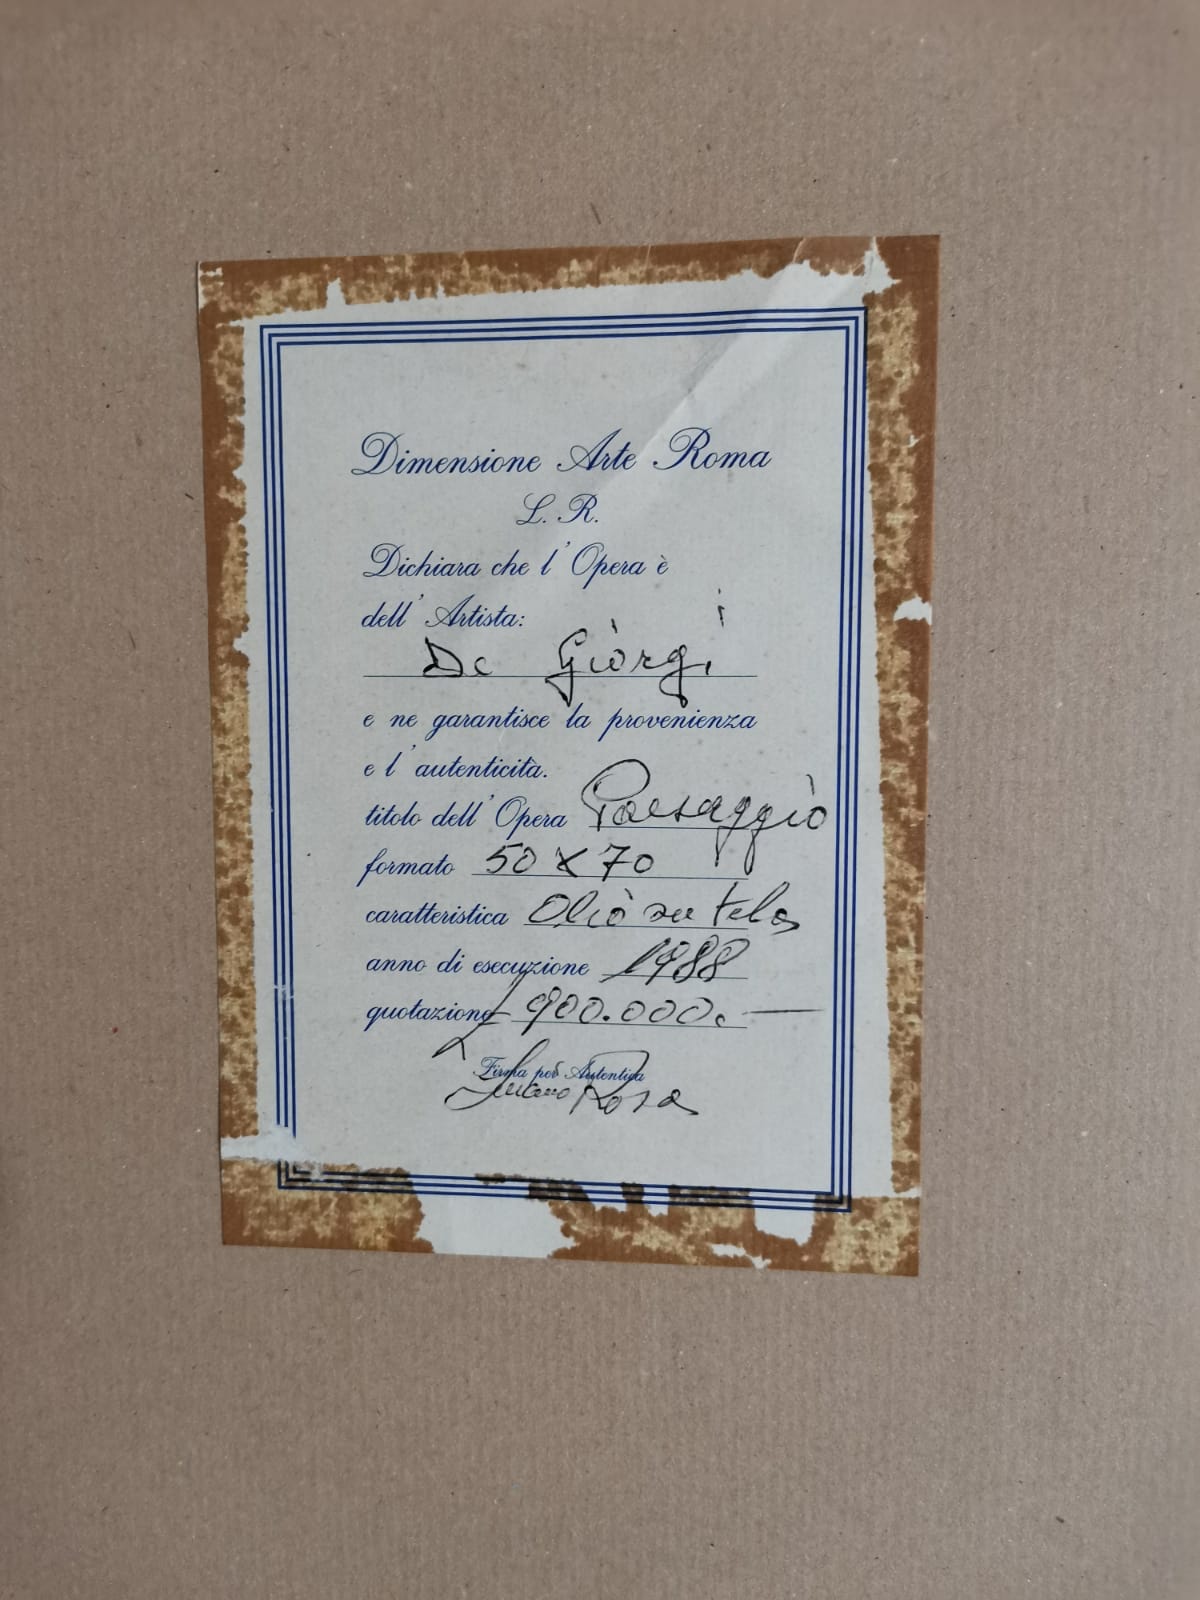 Dimensione Arte Roma
L. R.
Dichiara che l'Opera è
dell'Artista:
De Giorgi
e ne garantisce la provenienza
e l'autenticità.
titolo dell'Opera Paesaggio
formato 50 x 70
caratteristica Olio su tela
anno di esecuzione 1988
quotazione £ 900.000.—
Firma per Autentica
Luciano Rosa